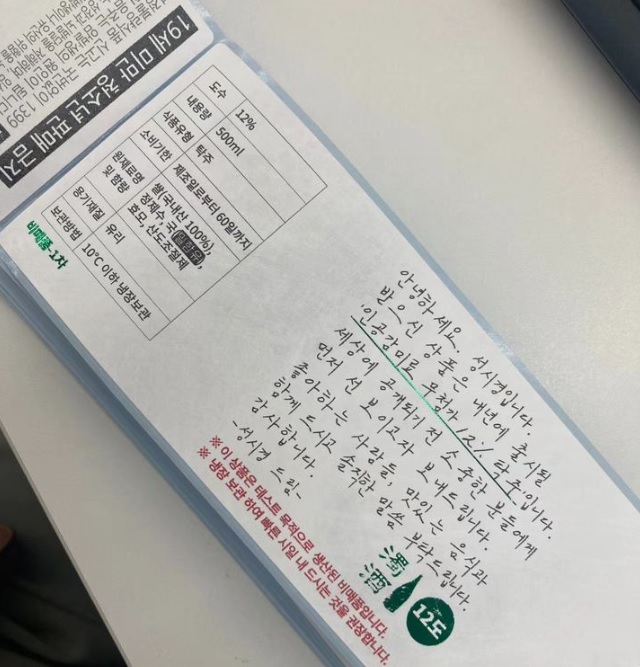 19세 미만 청소년 판매 금지
도수 12%
내용량 500ml
식품유형 탁주
소비기한 제조일로부터 60일까지
원재료명 및 함량 쌀(국내산 100%),
정제수, 국
효모, 산도조절제
용기재질 유리
보관방법 10℃ 이하 냉장보관
비매품-1차
안녕하세요. 성시경입니다.
받으신 상품은 내년에 출시될
인공감미료 무첨가 12% 탁주입니다.
세상에 공개되기 전 소중한 분들에게
먼저 선 보이고자 보내드립니다.
좋아하는 사람들, 맛있는 음식과
함께 드시고 솔직한 말씀 부탁드립니다.
감사합니다.
-성시경 드림-
濁酒
12도
※ 이 상품은 테스트 목적으로 생산된 비매품입니다.
※ 냉장 보관 하여 빠른 시일 내 드시는 것을 권장합니다.